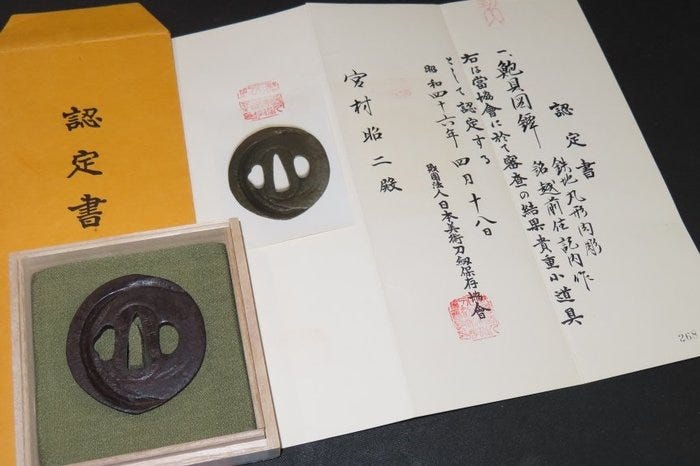 認定書
認定書
一、鮑貝図鐔
鉄地丸形肉彫
銘越前住記内作
右は當協會に於て審査の結果貴重小道具
として認定する
昭和四十六年 四月 十八日
財團法人日本美術刀劔保存協會
宮村昭二殿
268